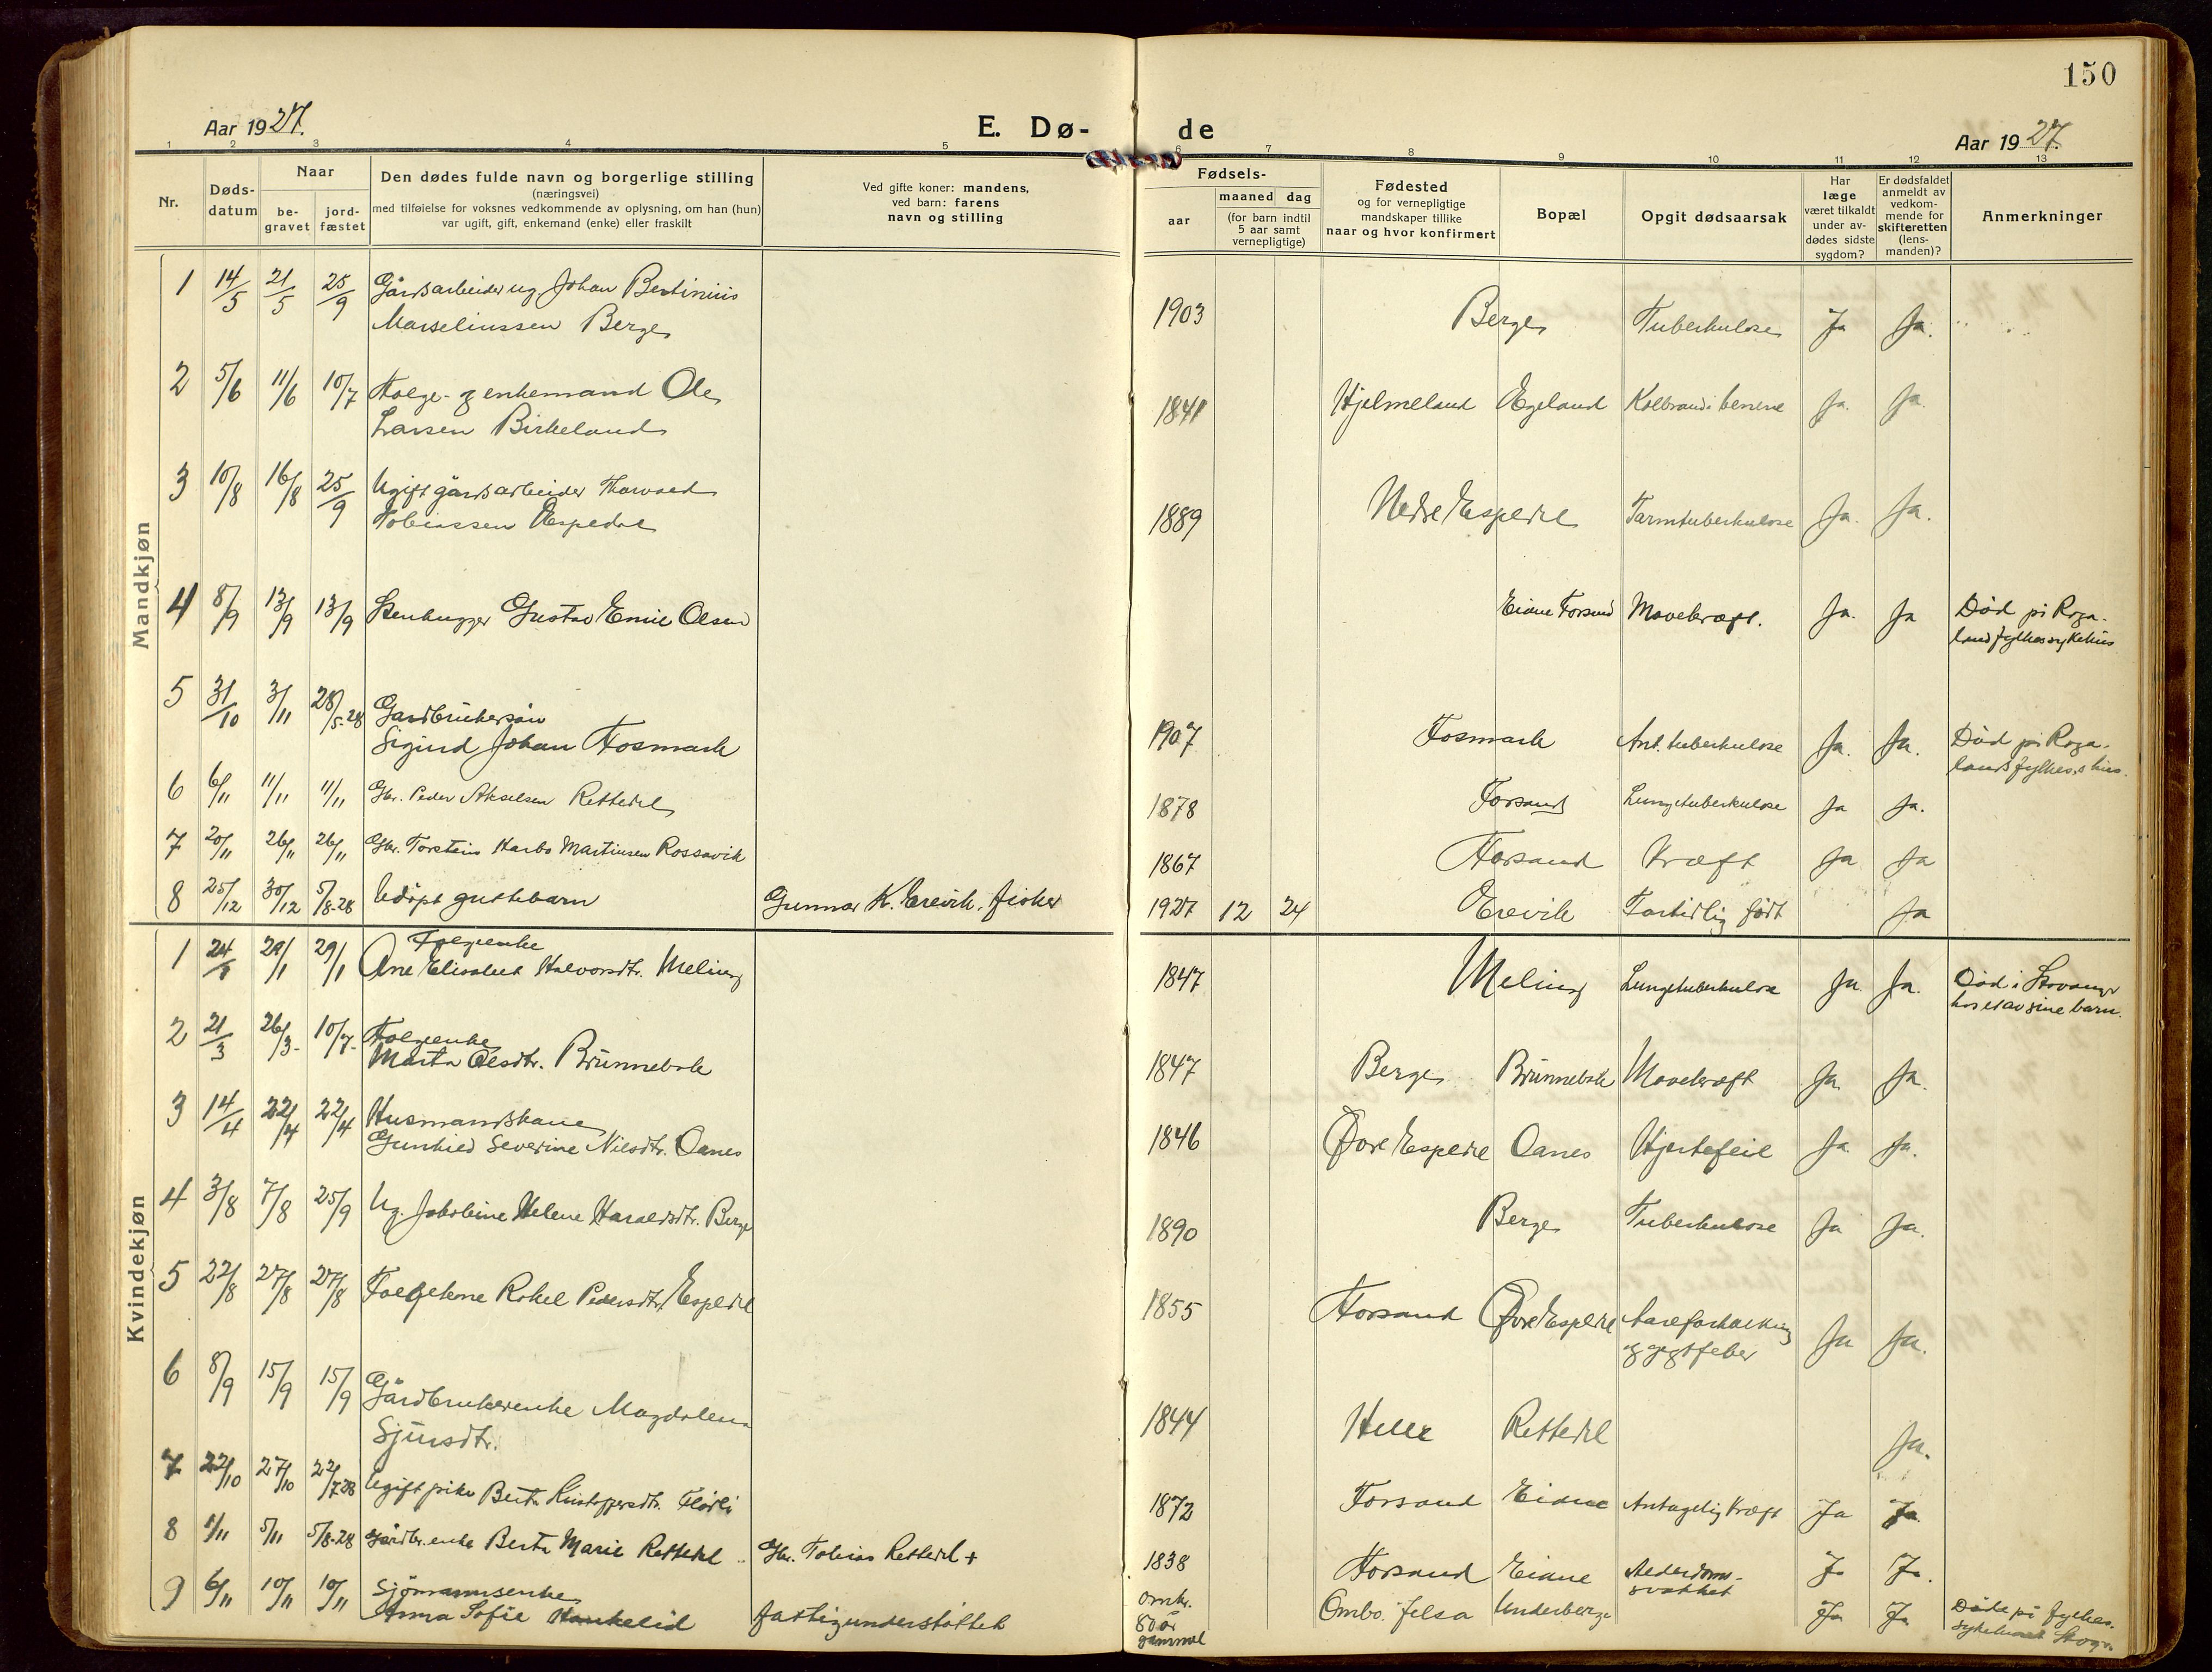 150
Aar 1927.
E. Dø-
de
Aar 1927.
1 2 3 4 5 6 7 8 9 10 11 12 13
Nr.
Døds-
datum
Naar
be-
gravet
jord-
fæstet
Den dødes fulde navn og borgerlige stilling
(næringsvei)
med tilføielse for voksnes vedkommende av oplysning, om han (hun)
var ugift, gift, enkemand (enke) eller fraskilt
Ved gifte koner: mandens,
ved barn: farens
navn og stilling
Fødsels-
aar
maaned dag
(for barn indtil
5 aar samt
vernepligtige)
Fødested
og for vernepligtige
mandskaper tillike
naar og hvor konfirmert
Bopæl
Opgit dødsaarsak
Har
læge
været tilkaldt
under av-
dødes sidste
sygdom?
Er dødsfaldet
anmeldt av
vedkom-
mende for
skifteretten
(lens-
manden)?
Anmerkninger
Mandkjøn
1 14/5 21/5 25/9 Gårdsarbeider ug Johan Bertinius
Marseliussen Berge
1903 Berge Tuberkulose Ja Ja.
2 5/6 11/6 10/7 Folge- g enkemand Ole
Larsen Birkeland
1841 Hjelmeland Egeland Kolbrand i benene Ja. Ja.
3 10/8 16/8 25/9 Ugift gårdsarbeider Thorvald
Tobiassen Espedal
1889 Nedre Espedal Tarmtuberkulose Ja. Ja.
4 8/9 13/9 13/9 Stenhugger Gustav Emil Olsen
Eiane Forsand Mavekræft. Ja. Ja Död på Roga-
land fylkessykehus
5 31/10 3/11 28/5-28 Gardbrukersön
Sigurd Johan Fosmark
1907 Fosmark Ant. tuberkulose Ja. Ja. Död på Roga-
lands fylkes.s hus.
6 6/11 11/11 11/11 Gbr. Peder Akselsen Rettedal
1878 Forsand Lungetuberkulose Ja Ja.
7 20/11 26/11 26/11 Gbr. Torstein Harbo Martinsen Rossavik
1867 Forsand Kræft Ja Ja
8 25/12 30/12 5/8-28 Udöpt guttebarn Gunnar K. Erevik, fisker
1927 12 24 Erevik Fortidlig født Ja
Kvindekjøn
1 24/1 29/1 29/1 Folgeenke
Ane Elisabet Halvorsdtr. Meling
1847 Meling Lungetuberkulose Ja Ja. Död i Stavanger
hos et av sine barn.
2 21/3 26/3- 10/7- Folgeenke
Marta Olsdtr. Brünnebak
1847 Berge Brünnebak Mavekræft Ja. Ja.
3 14/4 22/4 22/4 Husmandskone
Gunhild Severine Nilsdtr. Oanes
1846 Øvre Espedal Oanes Hjertefeil Ja Ja.
4 3/8 7/8 25/9 Ug. Jakobine Helene Haraldsdtr. Berge
1890 Berge Tuberkulose Ja Ja.
5 22/8 27/8 27/8 Folgekone Rakel Pedersdtr. Espedal
1855 Forsand Øvre Espedal Aareforkalkning
og gigtfeber Ja Ja.
6 8/9 15/9 15/9 Gårdbrukerenke Magdalena
Sjursdtr.
1844 Helle Rettedal Ja.
7 22/10 27/10 22/7.28 Ugift pike Berta Kristoffersdtr. Flörli
1872 Forsand Eiane Antagelig kræft Ja Ja.
8 1/11 5/11 5/8-28 Gårdbr. enke Berta Marie Rettedal Gbr. Tobias Rettedal +
1838 Forsand Eiane Alderdoms-
svakhet Ja Ja.
9 6/11 10/11 10/11 Sjömannsenke
Anna Sofie Haukelid fattigunderstöttet
Omkr.
80 år
gammal
Ombo. Jelsa Underberge Ja Ja Döde på fylkes.
sykehuset Stvgr.